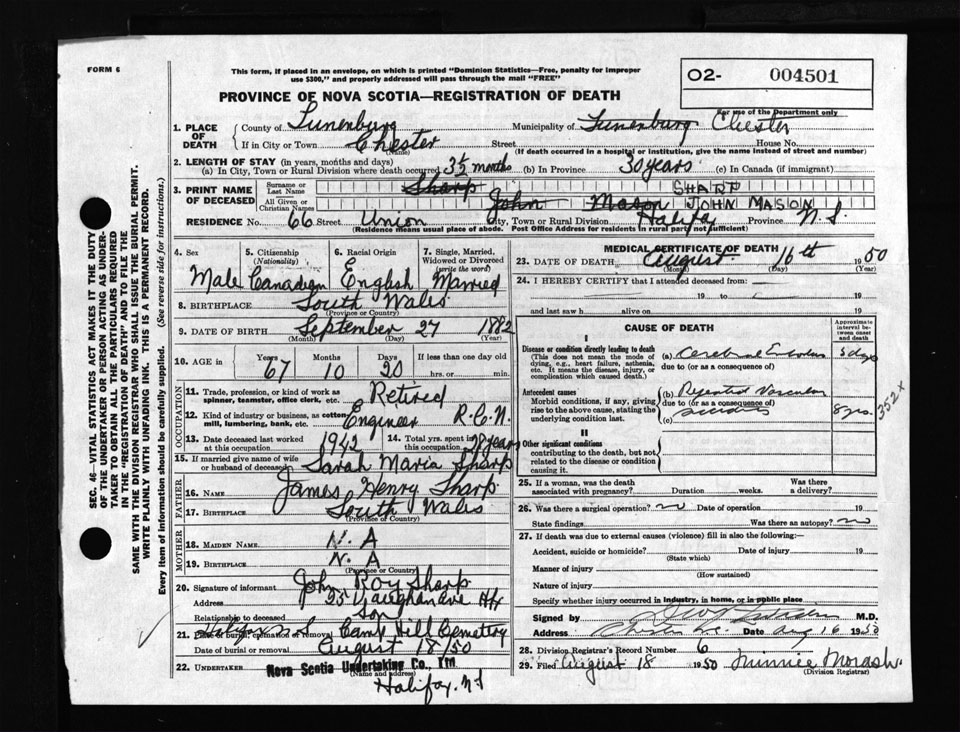 FORM 6
This form, if placed in an envelope, on which is printed "Dominion Statistics—Free, penalty for improper
use $300," and properly addressed will pass through the mail "FREE"
PROVINCE OF NOVA SCOTIA—REGISTRATION OF DEATH
O2- 004501
For use of the Department only
1. PLACE OF DEATH
County of Lunenburg Municipality of Lunenburg Chester
If in City or Town Chester Street House No.
(Name) (If death occurred in a hospital or institution, give the name instead of street and number)
2. LENGTH OF STAY (in years, months and days)
(a) In City, Town or Rural Division where death occurred 3½ months (b) In Province 30 years (c) In Canada (if immigrant)
3. PRINT NAME OF DECEASED
Surname or Last Name Sharp SHARP
All Given or Christian Names John Mason JOHN MASON
RESIDENCE No. 66 Street Union City, Town or Rural Division Halifax Province N.S.
(Residence means usual place of abode. Post Office Address for residents in rural parts not sufficient)
4. Sex Male
5. Citizenship (Nationality) Canadian
6. Racial Origin English
7. Single, Married, Widowed or Divorced (write the word) Married
8. BIRTHPLACE South Wales
(Province or Country)
9. DATE OF BIRTH September 27 1882
(Month) (Day) (Year)
10. AGE in Years 67 Months 10 Days 20 If less than one day old hrs. or min.
OCCUPATION
11. Trade, profession, or kind of work as spinner, teamster, office clerk, etc. Retired
12. Kind of industry or business, as cotton-mill, lumbering, bank, etc. Engineer R.C.N.
13. Date deceased last worked at this occupation 1942
14. Total yrs. spent in this occupation 28 years
15. If married give name of wife or husband of deceased Sarah Maria Sharp
FATHER
16. Name James Henry Sharp
17. BIRTHPLACE South Wales
(Province or Country)
MOTHER
18. MAIDEN NAME N. A
19. BIRTHPLACE N. A
(Province or Country)
20. Signature of informant John Roy Sharp
Address 25 Vaughan Ave Hfx
Relationship to deceased Son
21. Place of burial, cremation or removal Halifax N.S. Camp Hill Cemetery
Date of burial or removal August 18/50
22. UNDERTAKER Nova Scotia Undertaking Co., Ltd.
(Name and address)
Halifax. N.S
MEDICAL CERTIFICATE OF DEATH
23. DATE OF DEATH August 16th 1950
(Month) (Day) (Year)
24. I HEREBY CERTIFY that I attended deceased from:
19 to 19
and last saw h alive on 19
CAUSE OF DEATH
Approximate interval between onset and death
I
Disease or condition directly leading to death
(This does not mean the mode of dying, e.g., heart failure, asthenia, etc. It means the disease, injury, or complication which caused death.)
(a) Cerebral Embolus 3 days
due to (or as a consequence of)
Antecedent causes
Morbid conditions, if any, giving rise to the above cause, stating the underlying condition last.
(b) Repeated Vascular
due to (or as a consequence of)
accidents 8 yrs.
(c)
352 x
II
Other significant conditions
contributing to the death, but not related to the disease or condition causing it.
25. If a woman, was the death associated with pregnancy? Duration weeks. Was there a delivery?
26. Was there a surgical operation? no Date of operation 19
State findings Was there an autopsy? no
27. If death was due to external causes (violence) fill in also the following:—
Accident, suicide or homicide? Date of injury 19
(State which)
Manner of injury
(How sustained)
Nature of injury
Specify whether injury occurred in industry, in home, or in public place
Signed by M.D.
Address Chester Date Aug 16 1950
28. Division Registrar's Record Number 6
29. Filed August 18 1950 Minnie Morash
(Division Registrar)
SEC. 46—VITAL STATISTICS ACT MAKES IT THE DUTY
OF THE UNDERTAKER OR PERSON ACTING AS UNDER-
TAKER TO OBTAIN ALL THE PARTICULARS REQUIRED
IN THE "REGISTRATION OF DEATH" AND TO FILE THE
SAME WITH THE DIVISION REGISTRAR WHO SHALL ISSUE THE BURIAL PERMIT.
WRITE PLAINLY WITH UNFADING INK. THIS IS A PERMANENT RECORD.
Every item of information should be carefully supplied. (See reverse side for instructions.)